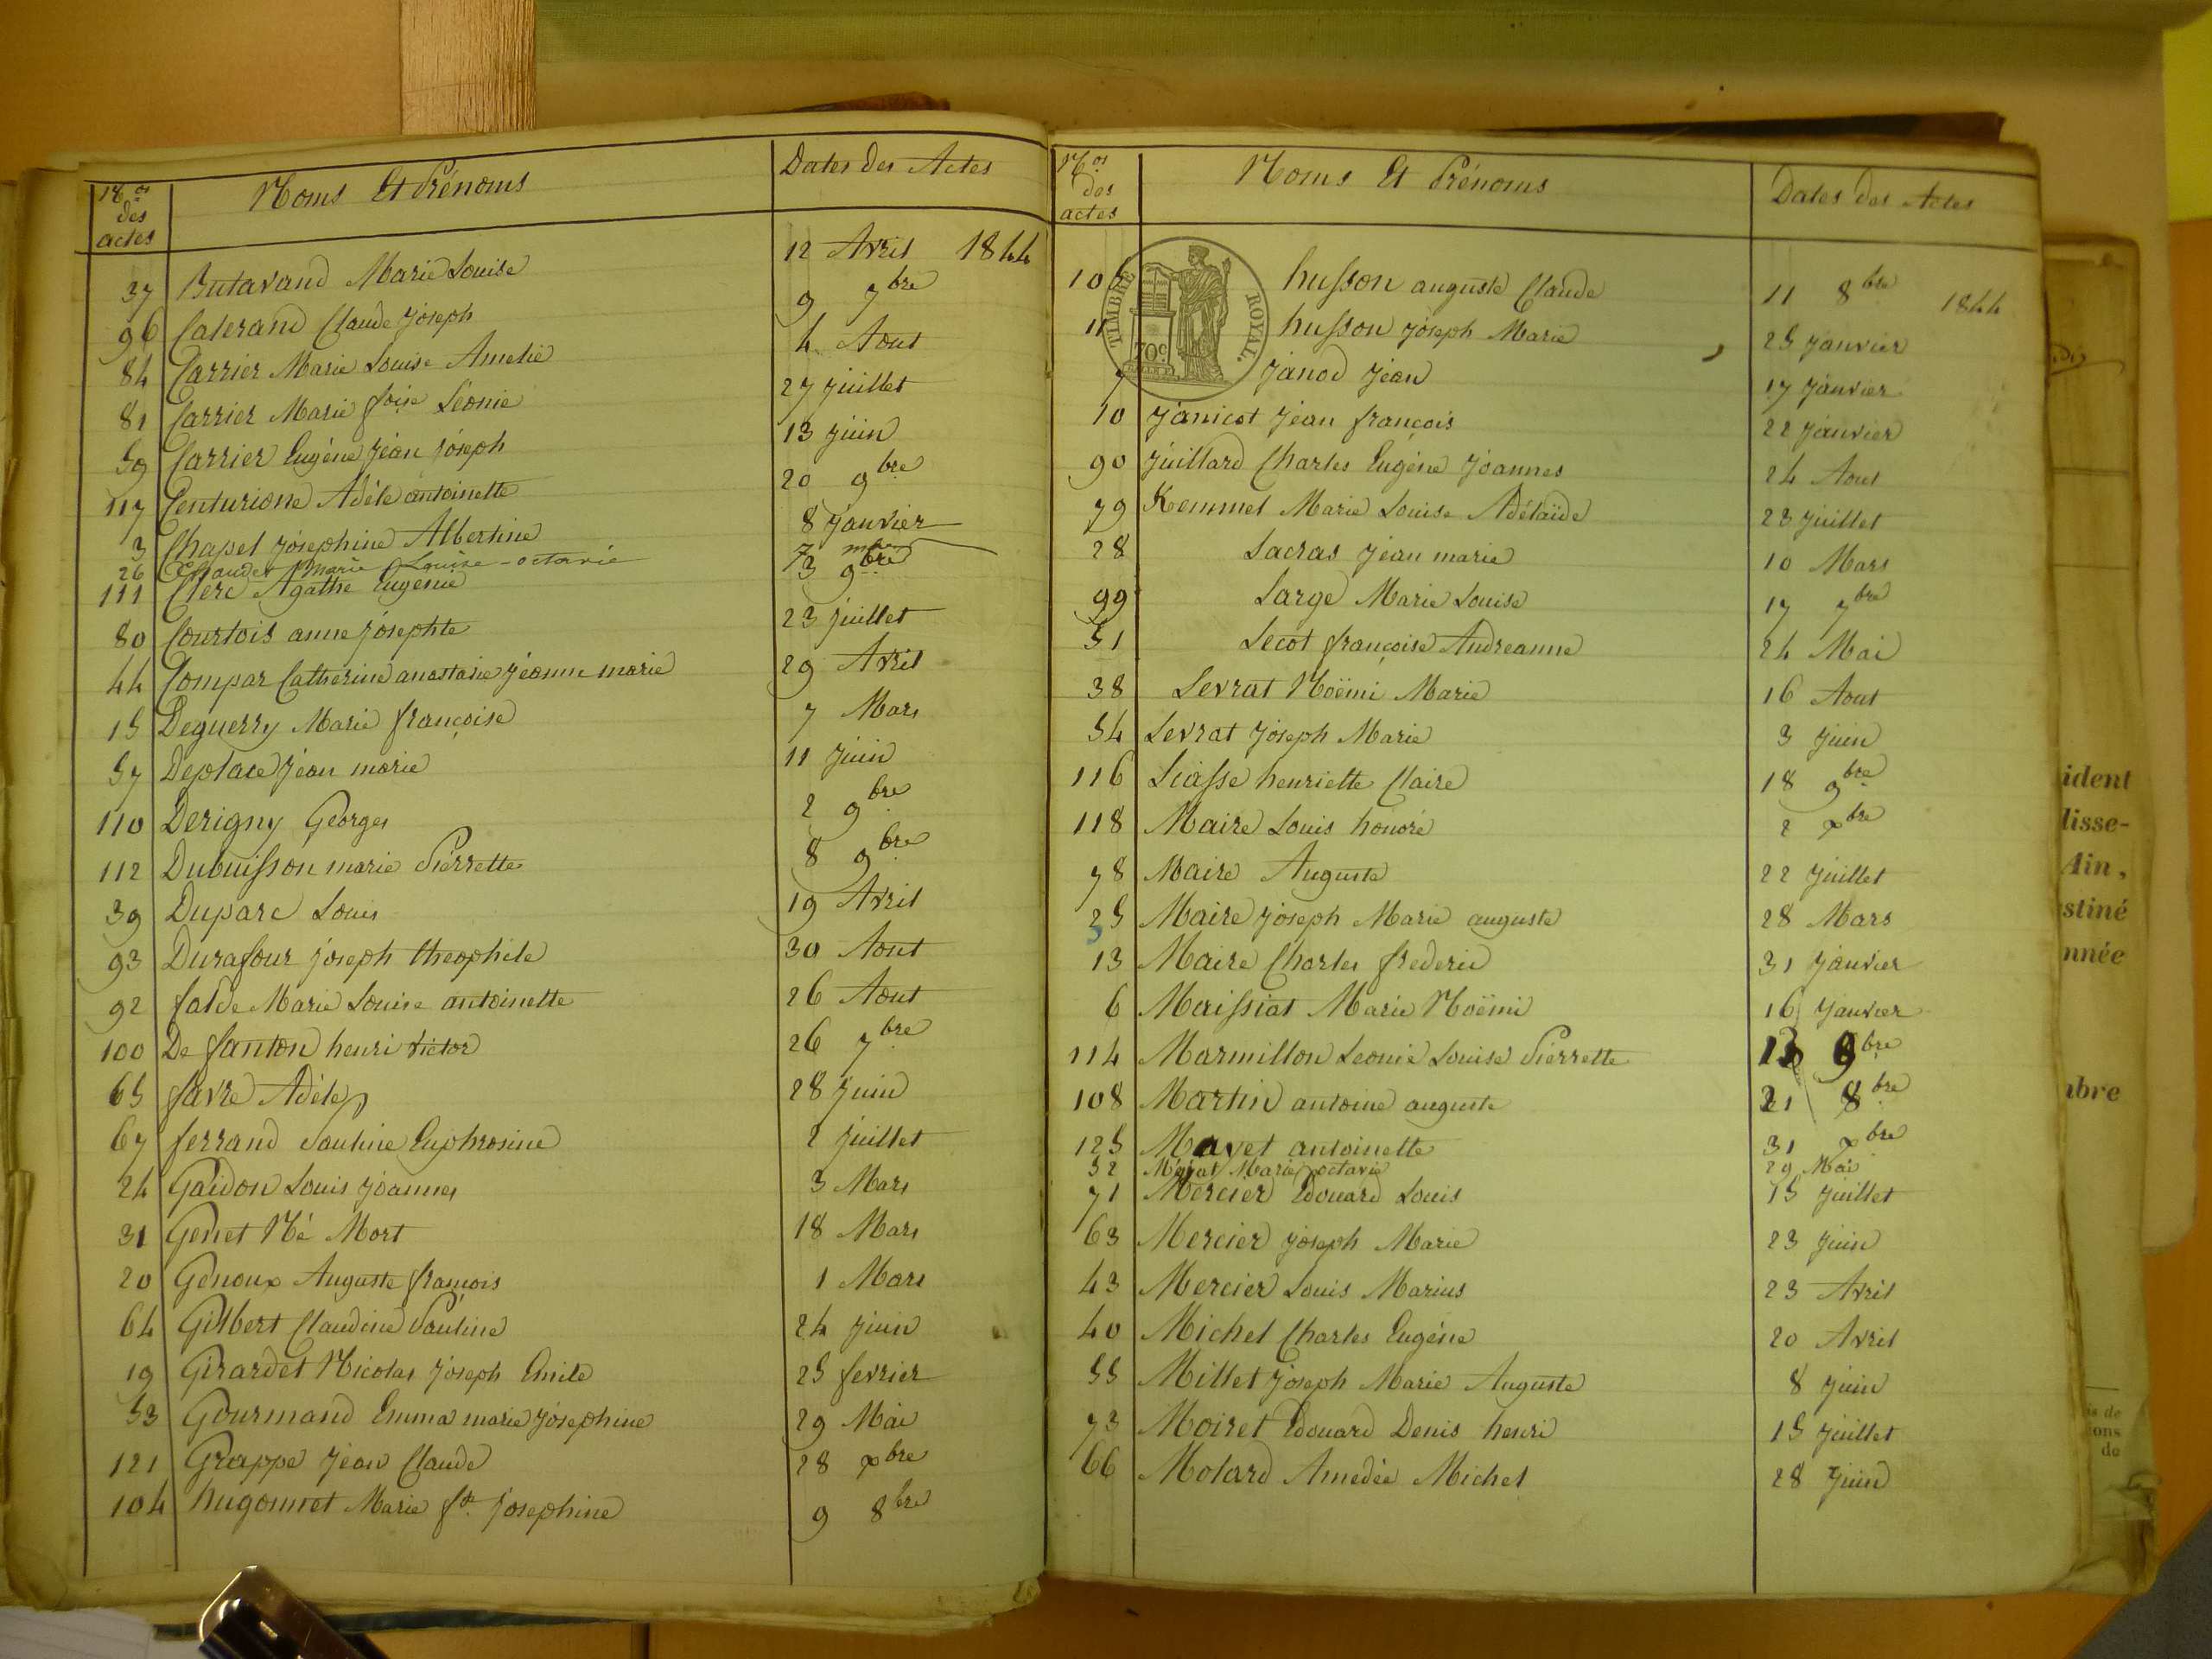 Nos des actes Noms Et Prénoms Dates des Actes
37 Butavand Marie Louise 12 Avril 1844
96 Caterand Claude Joseph 9 7bre
84 Carrier Marie Louise Amelie 4 Aout
81 Carrier Marie foise Léonie 27 juillet
59 Carrier Eugène Jéan joseph 13 juin
117 Centurione Adèle antoinette 20 9bre
3 Chapel josephine Albertine 8 janvier
26 marie Louise octavie 7
111 Clerc Agathe Eugenie 3 9bre
80 Courtois anne josephte 23 juillet
44 Compar Catherine anastasie jéanne marie 29 Avril
15 Deguerry Marie françoise 7 Mars
57 Deplace jéan marie 11 juin
110 Derigny Georges 2 9bre
112 Dubuisson marie Pierrette 8 9bre
39 Duparc Louis 19 Avril
93 Durafour joseph theophile 30 Aout
92 Marie Louise antoinette 26 Aout
100 De fanton henri victor 26 7bre
65 favre Adèle 28 juin
67 ferrand Pauline Euphrosine 2 juillet
24 Gaidon Louis joannes 3 Mars
31 Genet Né Mort 18 Mars
20 Genoux Auguste françois 1 Mars
64 Gilbert Claudine Pauline 24 juin
19 Girardet Nicolas joseph Emile 25 fevrier
53 Gourmand Emma marie josephine 29 Mai
121 Grappe jéan Claude 28 xbre
104 hugonnet Marie fse josephine 9 8bre
Nos des actes Noms Et Prénoms Dates des Actes
TIMBRE ROYAL. 70c
105 husson auguste Claude 11 8bre 1844
11 husson joseph Marie 25 janvier
7 janod jéan 17 janvier
10 janicot jéan françois 22 janvier
90 juillard Charles Eugène joannes 24 Aout
79 Kemmel Marie Louise Adélaïde 23 juillet
28 Lacras jéan marie 10 Mars
99 Large Marie Louise 17 7bre
51 Lecot françoise Andreanne 24 Mai
38 Levrat Noëmi Marie 16 Aout
54 Levrat joseph Marie 3 juin
116 Liasse henriette Claire 18 9bre
118 Maire Louis honoré 2 xbre
78 Maire Auguste 22 juillet
25 Maire joseph Marie auguste 28 Mars
13 Maire Charles frederic 31 janvier
6 Maissiat Marie Noëmi 16 janvier
114 Marmillon Leonie Louise Pierrette 9bre
108 Martin antoine auguste 21 8bre
125 Mayet antoinette 31 xbre
52 Marie octavie 29 Mai
71 Mercier Edouard Louis 15 juillet
63 Mercier joseph Marie 23 juin
43 Mercier Louis Marius 23 Avril
40 Michel Charles Eugéne 20 Avril
55 Millet joseph Marie Auguste 8 juin
73 Moiret Edouard Denis henri 15 juillet
66 Molard Amedée Michel 28 juin
ident
lisse-
Ain,
stiné
nnée
nbre
is de
ions
de